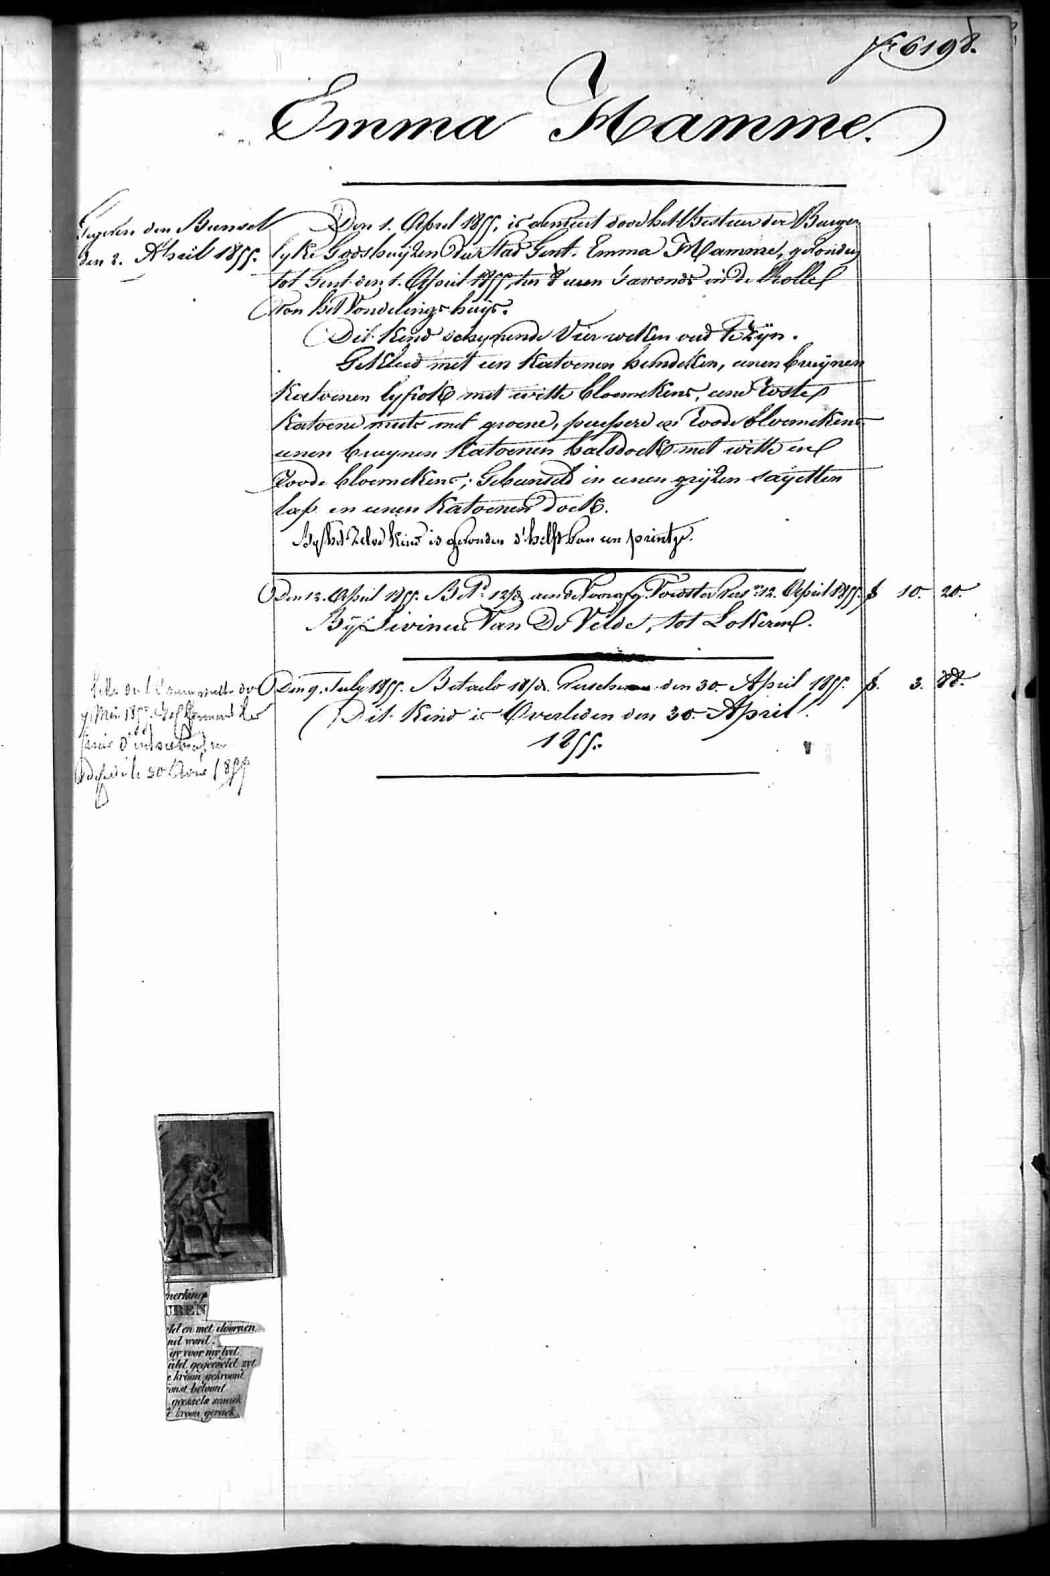 N.º 6198.
Emma Hamme.
Gegeven den Bunsel
den 2. April 1855.
Den 1. April 1855, is aenveert door het Bestier der Burger
lyke Godshuyzen der Stad Gent. Emma Hamme, gevonden
tot Gent den 1. April 1855, ten 8 uren 's avonds in de Rolle
van het Vondelingshuys.
Dit Kind schynende Vier weken oud te zyn.
Gekleed met een Katoenen hemdeken, eenen bruynen
Katoenen lyfrok met witte bloemekens, eene Roste
Katoene muts met groene, purpere en Roode bloemekens
eenen bruynen Katoenen halsdoek met witte en
Roode bloemekens; Gebunseld in eenen gryzen sayetten
lap en eenen Katoenen doek.
By het zelve Kind is gevonden d'helft van een printje.
Den 12. April 1855. Bet.d 12/8 aen de Voorsz. Voedster sed.t 12. April 1855. f 10. 20.
By Livinus Van De Velde, tot Lokeren.
Den 9. July 1855. Betaelt 18/d. den 30. April 1855. f. 3. 88.
Dit Kind is Overleden den 30. April
1855.
9. Mei 1855.
30 1855
nerking
UREN
eld en met doornen
nd word.
gy voor my leed
uld gegeeseld zyt
e kroon gekroont
onst beloont
geessels smaek
t kroon geraek